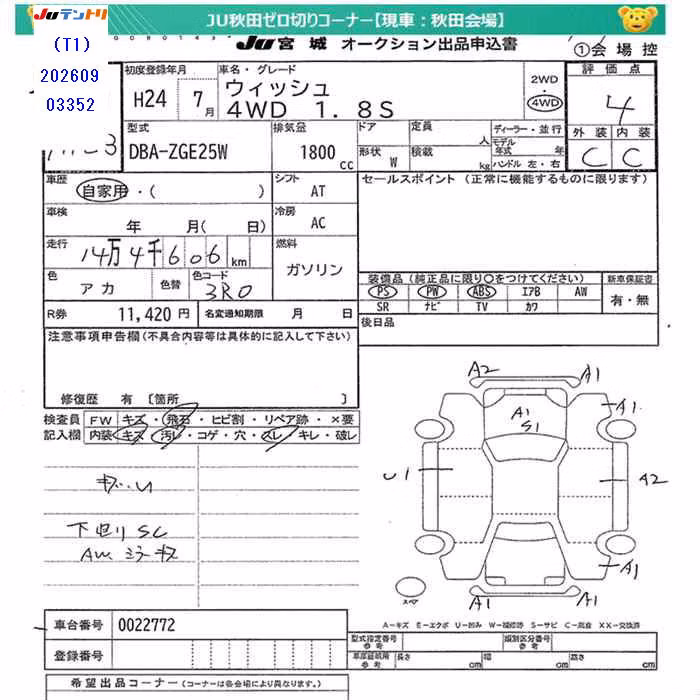 JUテントリ
JU秋田ゼロ切りコーナー【現車：秋田会場】
(T1)
202609
03352
JU 宮城 オークション出品申込書
①会場控
初度登録年月
H24 7月
車名・グレード
ウィッシュ
4WD 1.8S
2WD
4WD
評価点
4
外装 内装
C C
型式
DBA-ZGE25W
排気量
1800 cc
ドア
形状 W
定員 人
積載 kg
ディーラー・並行
モデル年式 年
ハンドル 左・右
車歴
自家用・( )
シフト
AT
セールスポイント (正常に機能するものに限ります)
車検
年 月( 日)
冷房
AC
走行
14万4千606km
燃料
ガソリン
色
アカ
色替
色コード
3R0
装備品 (純正品に限り○をつけてください)
新車保証書
PS PW ABS エアB AW
SR ナビ TV カワ
有・無
R券 11,420円
名変通知期限 月 日
後日品
注意事項申告欄(不具合内容等は具体的に記入して下さい)
修復歴 有 [箇所 ]
検査員
記入欄
FW キズ・飛石・ヒビ割・リペア跡・×要
内装 キズ・汚レ・コゲ・穴・スレ・キレ・破レ
下回りSC
AW ミラーキズ
A2 A1
A1
A1
S1
U1
A2
A1
A1 A1
スペア
A－キズ E－エクボ U－凹み W－補修跡 S－サビ C－腐食 XX－交換済
車台番号 0022772
登録番号
型式指定番号
参考
類別区分番号
参考
車庫証明用
参考
長さ cm
幅 cm
高さ cm
希望出品コーナー (コーナーは各会場により異なります。)